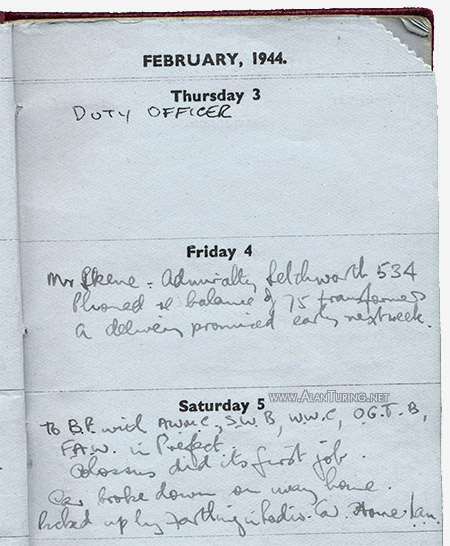 FEBRUARY, 1944.
Thursday 3
DUTY OFFICER
Friday 4
Mr Skene - Admiralty Letchworth 534
Phoned re balance of 75 transformers
a delivery promised early next week.
www.AlanTuring.net
Saturday 5
To B.P. with A.W.M.C, S.W.B, W.W.C, O.G.T.B,
F.A.W. in Prefect.
Colossus did its first job.
Car broke down on way home.
Picked up by Farthing in Radio Car. Home 1am.